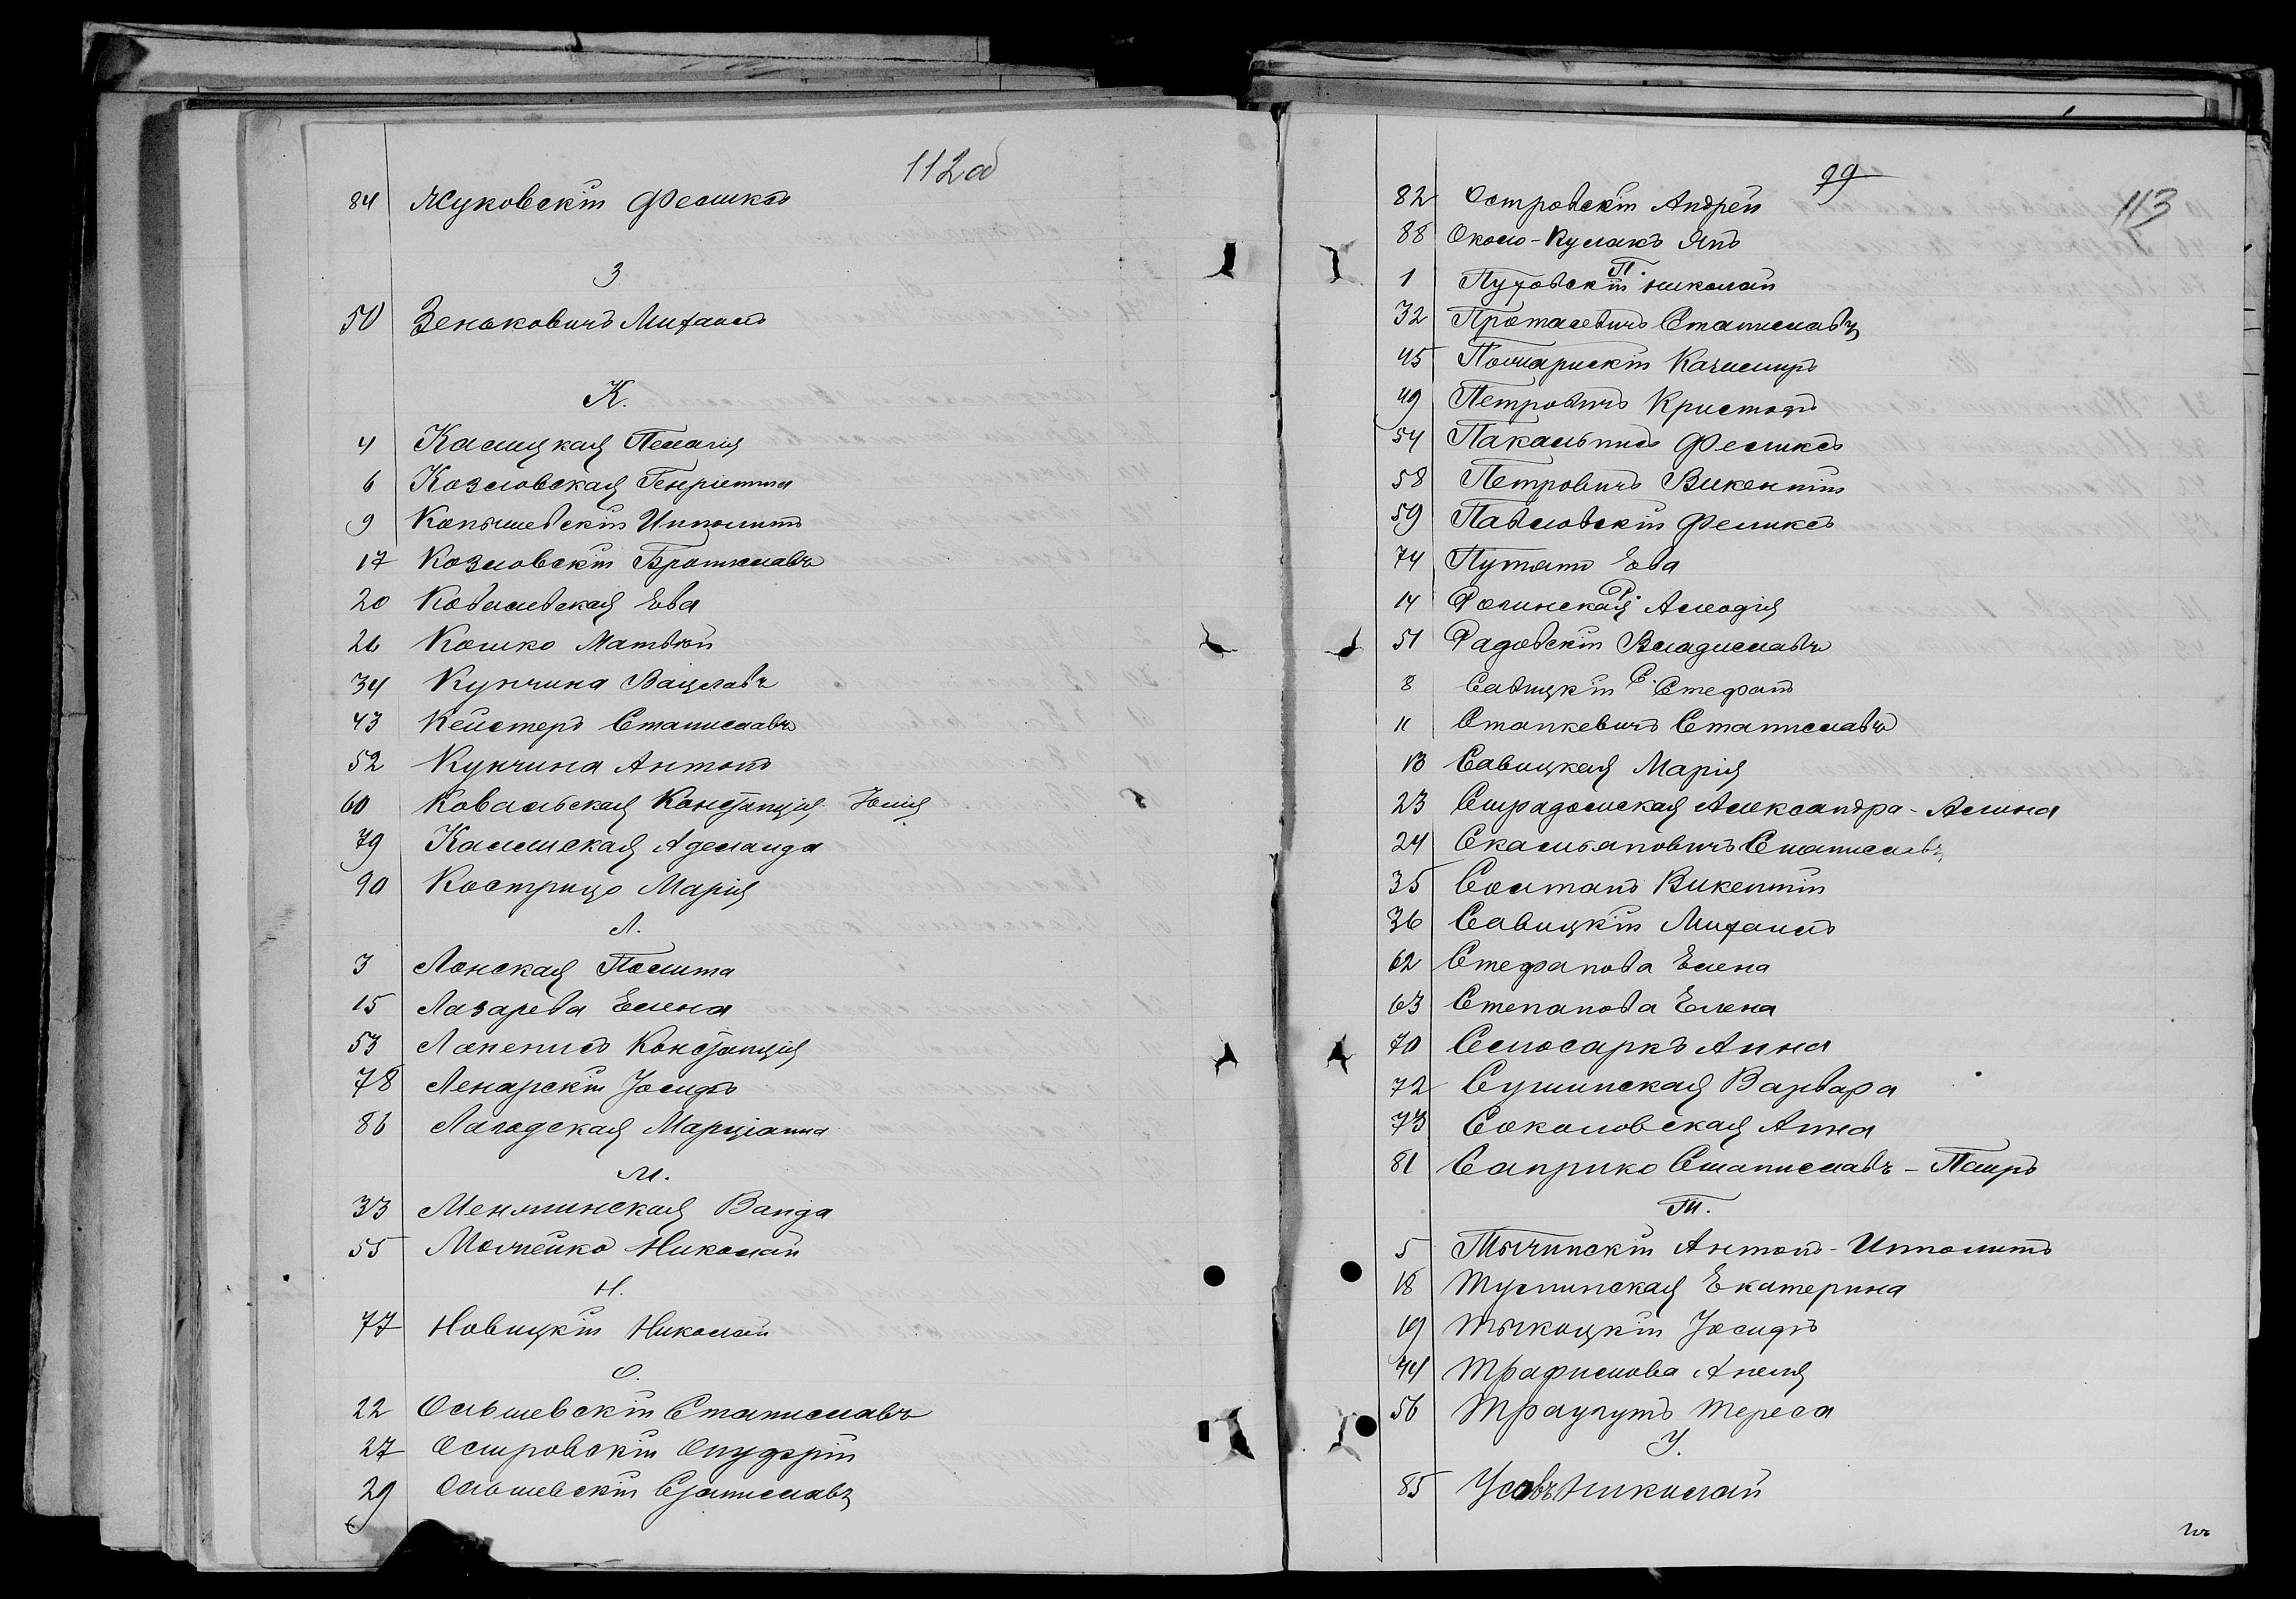 112об
84 Жуковскій Феликсъ
З
50 Зеньковичъ Михаилъ
К.
4 Калицкая Пелагія
6 Козловская Генріетта
9 Копышевскій Ипполитъ
17 Козловскій Брониславъ
20 Ковалевская Ева
26 Кошко Матвѣй
34 Кунчина Вацлавъ
43 Кейстеръ Станиславъ
52 Кунчина Антонъ
60 Ковальская Констанція Юлія
79 Калинская Аделаида
90 Кострицо Марія
Л.
3 Лонская Полита
15 Лазарева Елена
53 Констанція
78 Ленарскій Іосифъ
86 Лагодская Марціанна
М.
33 Менжинская Ванда
55 Молчейко Николай
Н.
77 Новицкій Николай
О.
22 Ольшевскій Станиславъ
27 Островскій Онуфрій
29 Ольшевскій Станиславъ
99
113
82 Островскій Андрей
88 Около-Кулакъ Янъ
П.
1 Пуховскій Николай
32 Протасевичъ Станиславъ
45 Казимиръ
49 Петровичъ Кристофъ
54 Пакальнисъ Феликсъ
58 Петровичъ Викентій
59 Павловскій Феликсъ
74 Путято Ева
Р.
14 Рогинская
51 Радовскій Владиславъ
С.
8 Савицкій Стефанъ
11 Станкевичъ Станиславъ
13 Савицкая Марія
23 Страдомская Александра-Алина
24 Скальяновичъ Станиславъ
35 Солтанъ Викентій
36 Савицкій Михаилъ
62 Стефанова Елена
63 Степанова Елена
70 Анна
72 Сушинская Варвара
73 Соколовская Анна
81 Саприко Станиславъ-Петръ
Т.
5 Тычинскій Антонъ-Ипполитъ
18 Туслинская Екатерина
19 Тычкоцкій Іосифъ
44 Трафимова Анеля
56 Траугутъ Тереса
У.
85 Николай